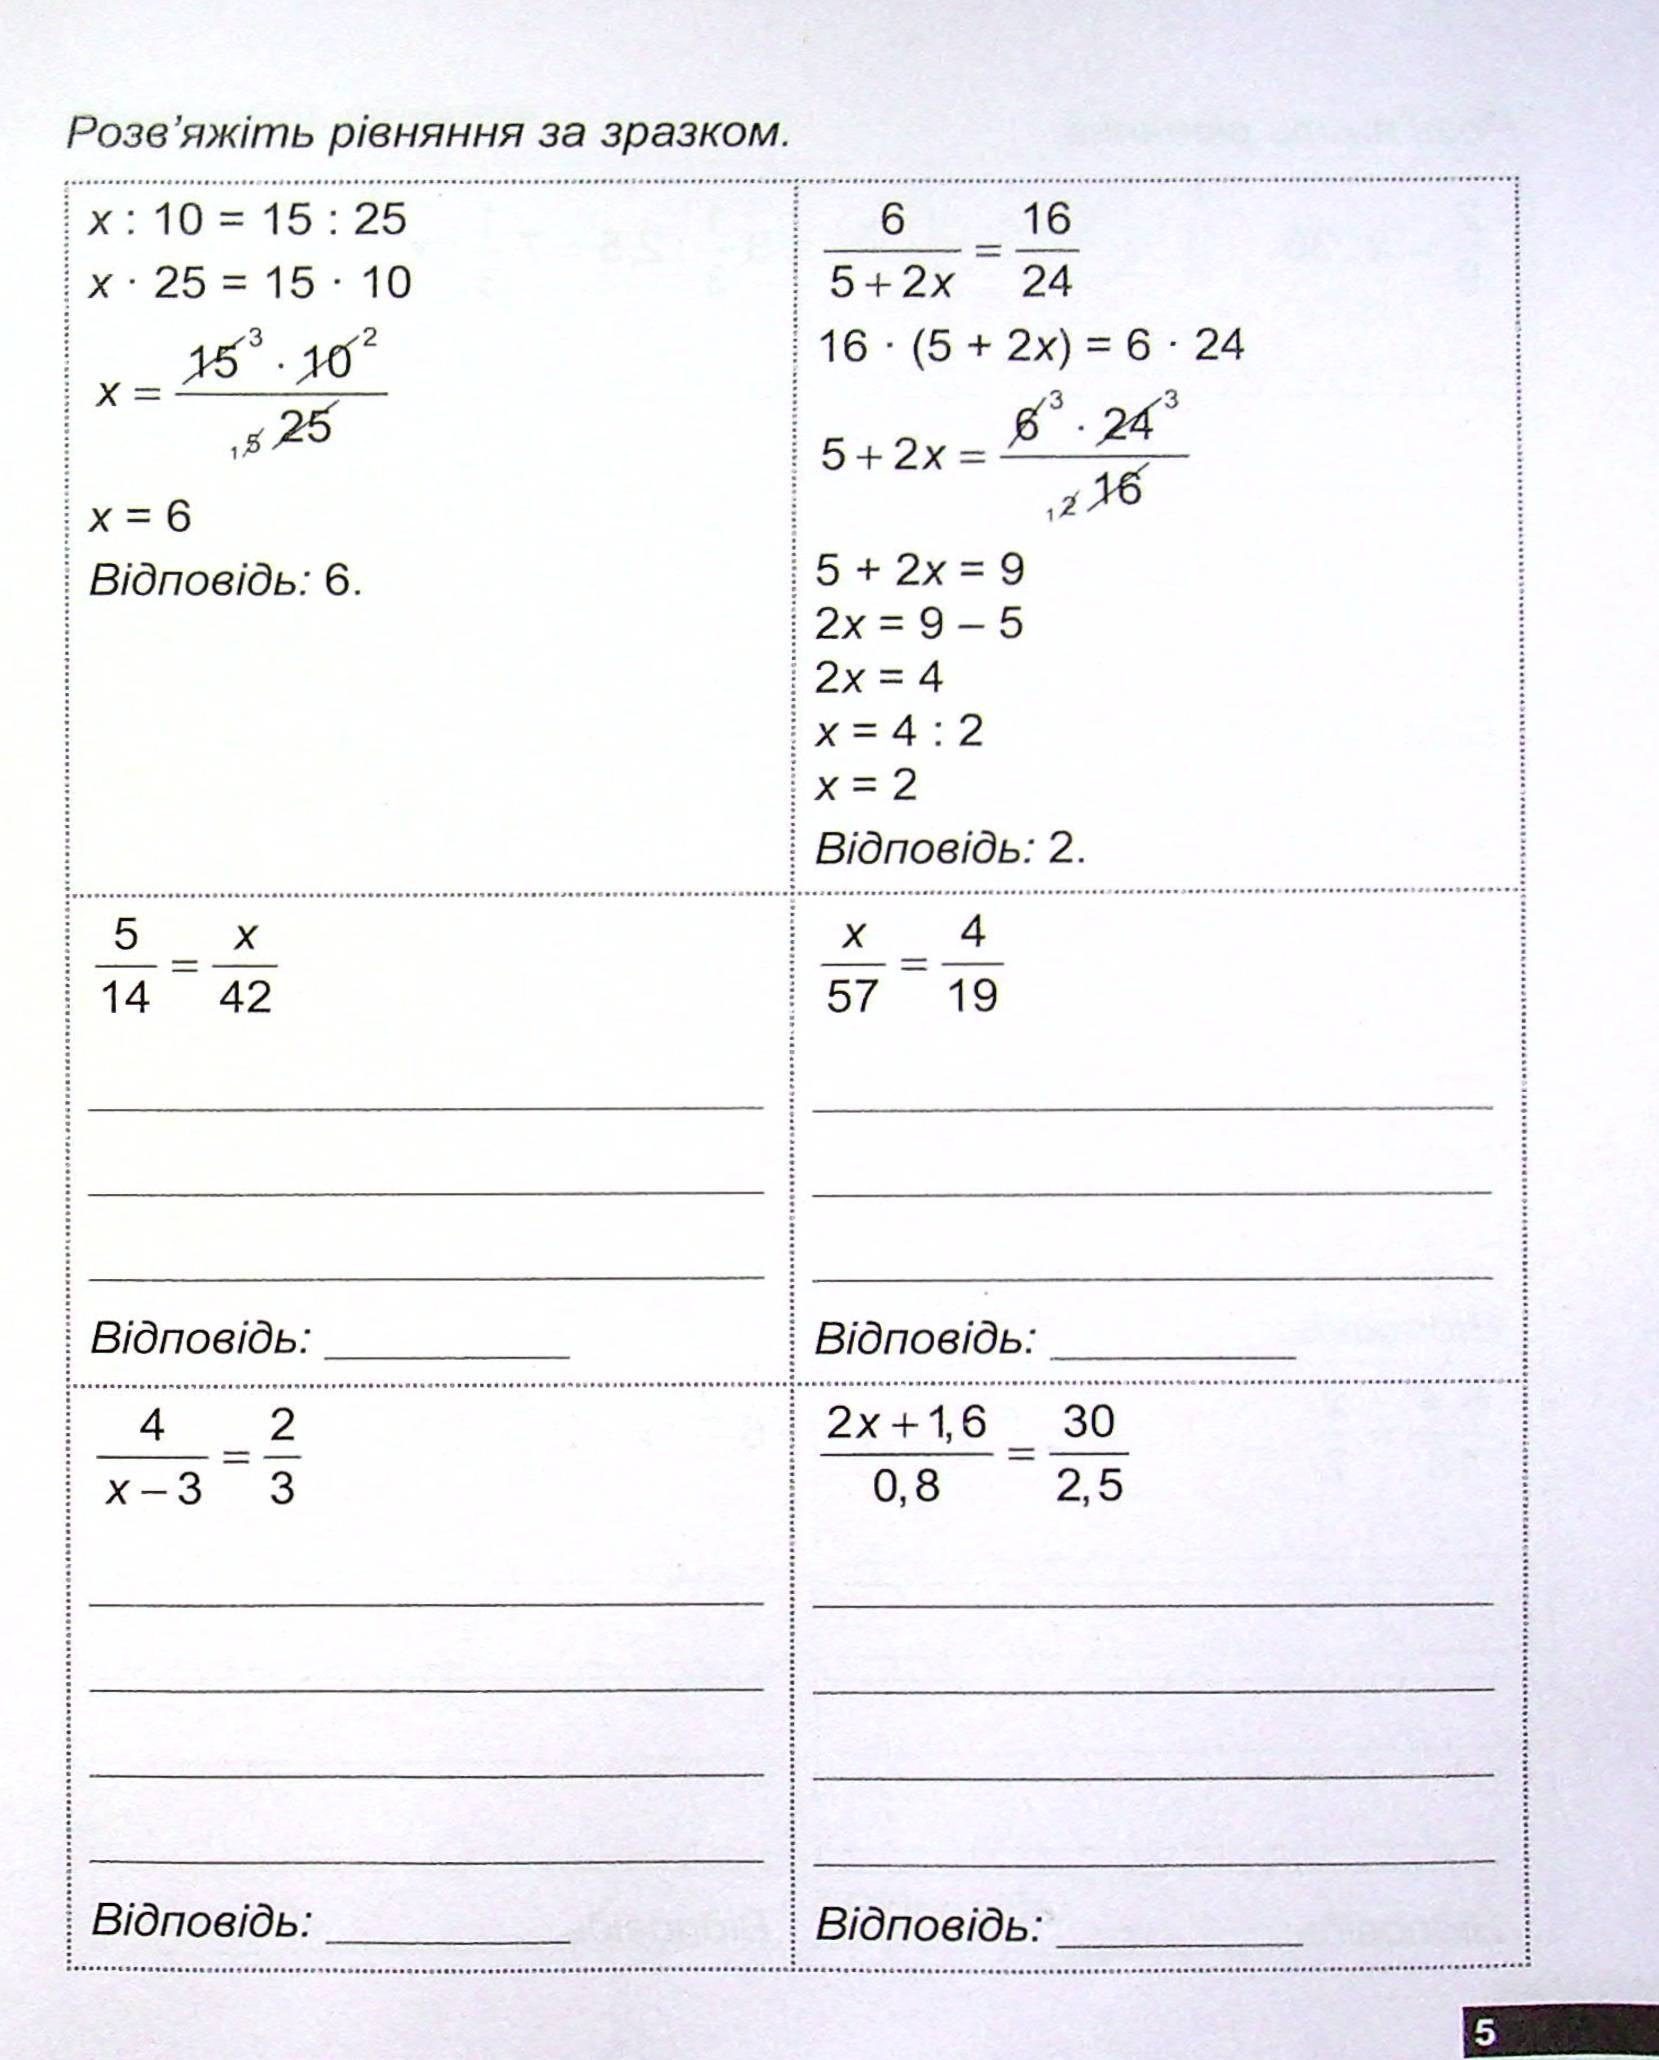 Розв’яжіть рівняння за зразком.
x : 10 = 15 : 25
x · 25 = 15 · 10
x = 15³ · 10² / ₁ 5 25
x = 6
Відповідь: 6.
6 / 5 + 2x = 16 / 24
16 · (5 + 2x) = 6 · 24
5 + 2x = 6³ · 24³ / ₁ 2 16
5 + 2x = 9
2x = 9 – 5
2x = 4
x = 4 : 2
x = 2
Відповідь: 2.
5 / 14 = x / 42
Відповідь:
x / 57 = 4 / 19
Відповідь:
4 / x – 3 = 2 / 3
Відповідь:
2x + 1,6 / 0,8 = 30 / 2,5
Відповідь:
5